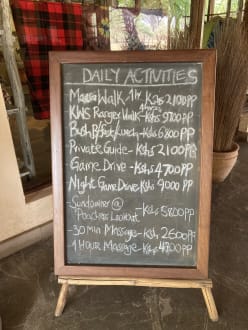 DAILY ACTIVITIES
Maasai Walk 1hr - Ksh 2100 PP
KWS Ranger Walk - Ksh 9700 PP
Bush B/fast, Lunch - Ksh 6800 PP
Private Guide - Kshs 2100 PP
Game Drive - Kshs 4700 PP
Night Game Drive - Kshs 9000 PP
Sundowner @
Poachers Lookout - Kshs 5800 PP
30 Min Massage - Ksh 2600 PP
1 Hour Massage - Kshs PP